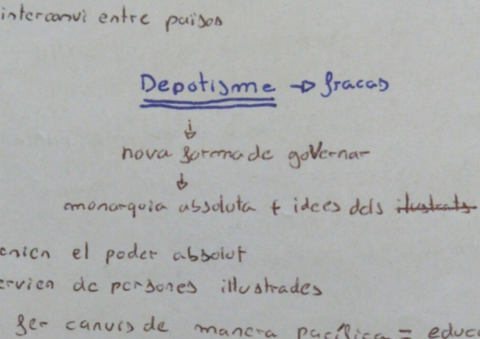 intercanvi entre països
Depotisme → fracas
↓
nova forma de governar
↓
monarquia absoluta + idees dels ilustrats
enien el poder absolut
ervien de persones illustrades
fer canvis de manera pacífica = educ